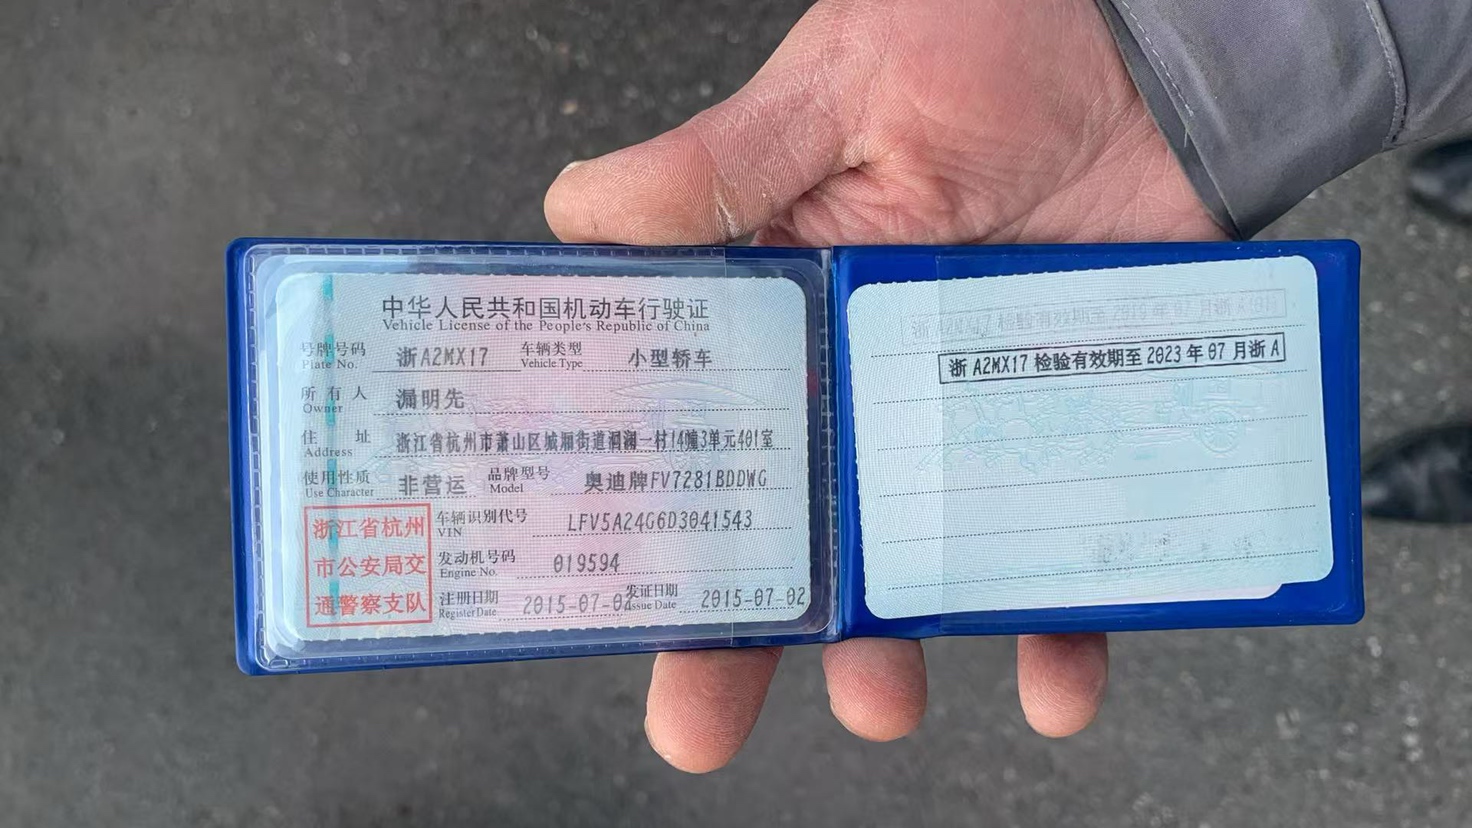 中华人民共和国机动车行驶证
Vehicle License of the People's Republic of China
号牌号码 浙A2MX17 车辆类型 小型轿车
Plate No. Vehicle Type
所有人 漏明先
Owner
住址 浙江省杭州市萧山区城厢街道泗洲一村14幢3单元401室
Address
使用性质 非营运 品牌型号 奥迪牌FV7281BDDWG
Use Character Model
浙江省杭州
市公安局交
通警察支队
车辆识别代号 LFV5A24G6D3041543
VIN
发动机号码 019594
Engine No.
注册日期 2015-07-02 发证日期 2015-07-02
Register Date Issue Date
浙A2MX17 检验有效期至 年07月浙A
浙A2MX17 检验有效期至2023年07月浙A